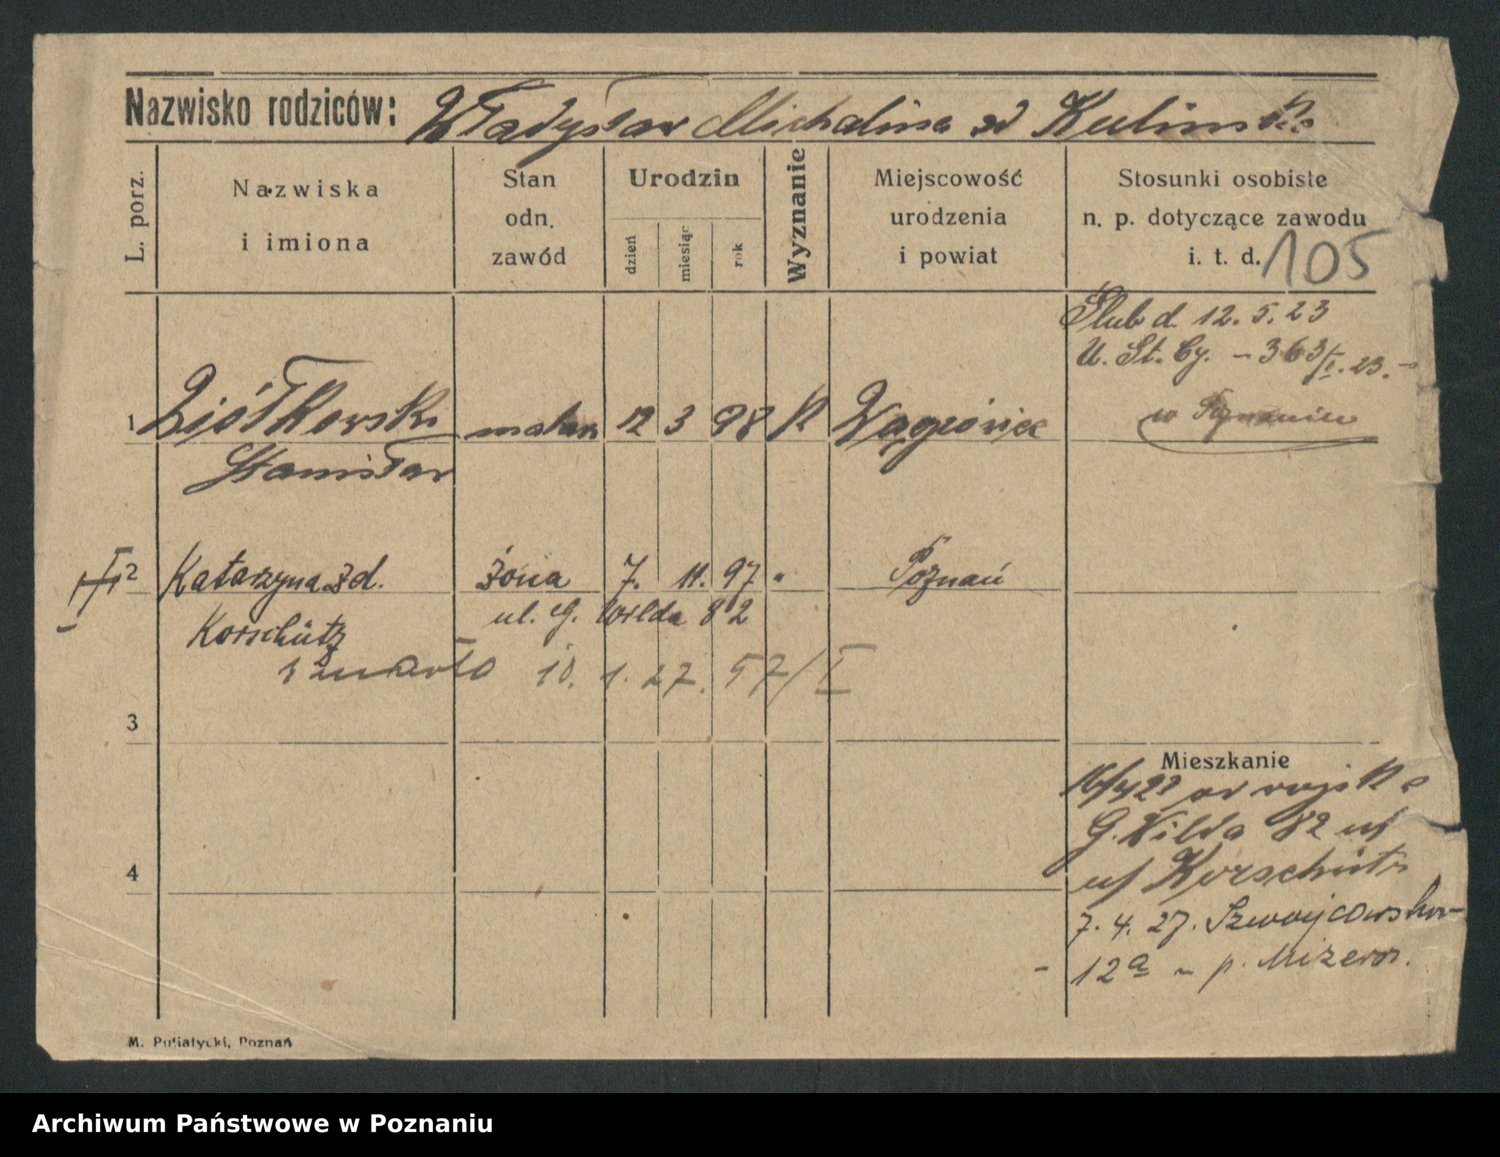 Nazwisko rodziców: Władysław Michalina zd Kulinska
L. porz.
Nazwiska
i imiona
Stan
odn.
zawód
Urodzin
dzień
miesiąc
rok
Wyznanie
Miejscowość
urodzenia
i powiat
Stosunki osobiste
n. p. dotyczące zawodu
i. t. d.
105
Ślub d. 12. 5. 23
U. St. Cy. - 363/I. 23. -
w Poznaniu
1 Ziółkowski malarz 12 3 98 K Wągrówiec
Stanisław
2 Katarzyna zd. żona 7. 11. 97 " Poznań
Korschütz ul. G. Wilda 82
zmarła 10. 1. 27. 57/I
3
4
Mieszkanie
z wojska
G. Wilda 82
Korschütz
7. 4. 27.
12a - p. Mizera.
M. Putiatycki, Poznań
Archiwum Państwowe w Poznaniu